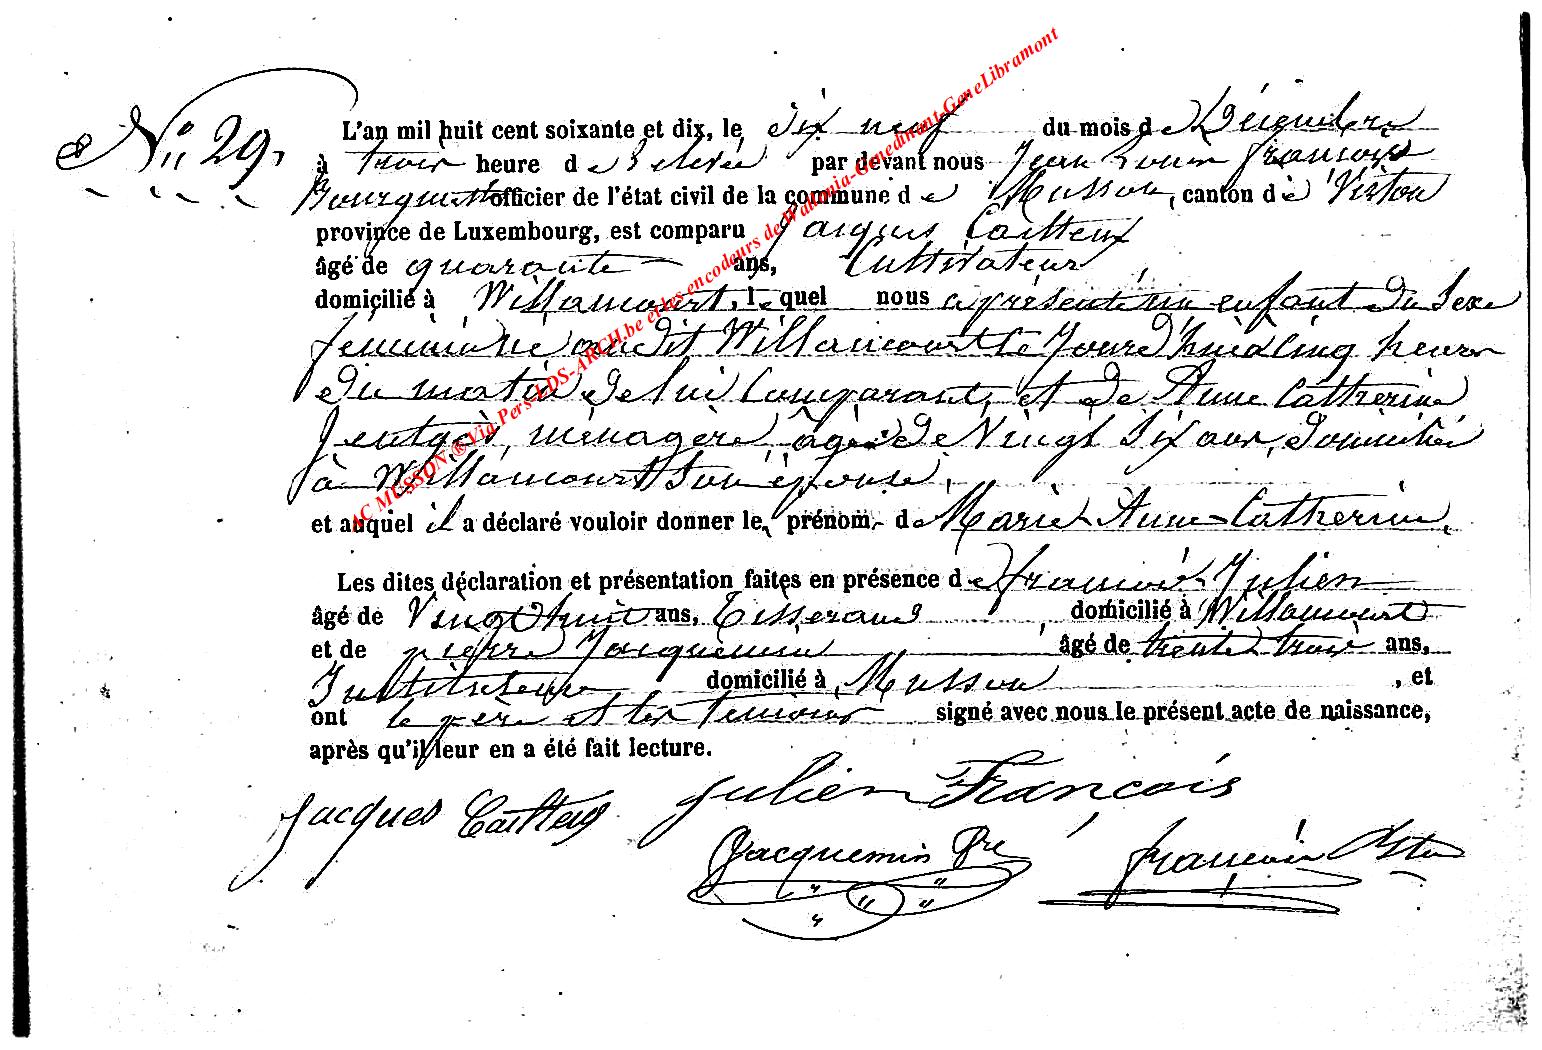 N° 29,
L'an mil huit cent soixante et dix, le dix neuf du mois de Décembre
à trois heure de relevée par devant nous Jean Louis François
Bourguignon officier de l'état civil de la commune de Musson, canton de Virton
province de Luxembourg, est comparu Jacques Cailteux
âgé de quarante ans, Cultivateur
domicilié à Willancourt, lequel nous a présenté un enfant du sexe
féminin né audit Willancourt le jourd'hui à cinq heures
du matin de lui comparant, et de Anne Catherine
Jentges, ménagère, âgée de vingt six ans, domiciliée
à Willancourt son épouse,
et auquel il a déclaré vouloir donner les prénoms de Marie-Anne-Catherine,
Les dites déclaration et présentation faites en présence de François Julien
âgé de vingt huit ans, Tisserand domicilié à Willancourt
et de pierre Jacquemin âgé de trente trois ans,
Instituteur domicilié à Musson, et
ont le père et les témoins signé avec nous le présent acte de naissance,
après qu'il leur en a été fait lecture.
Jacques Cailteux Julien François
Jacquemin Pre
AC MUSSON ® Via Pers LDS-ARCH.be et les encodeurs de Wallonia-Genedinant-GeneLibramont